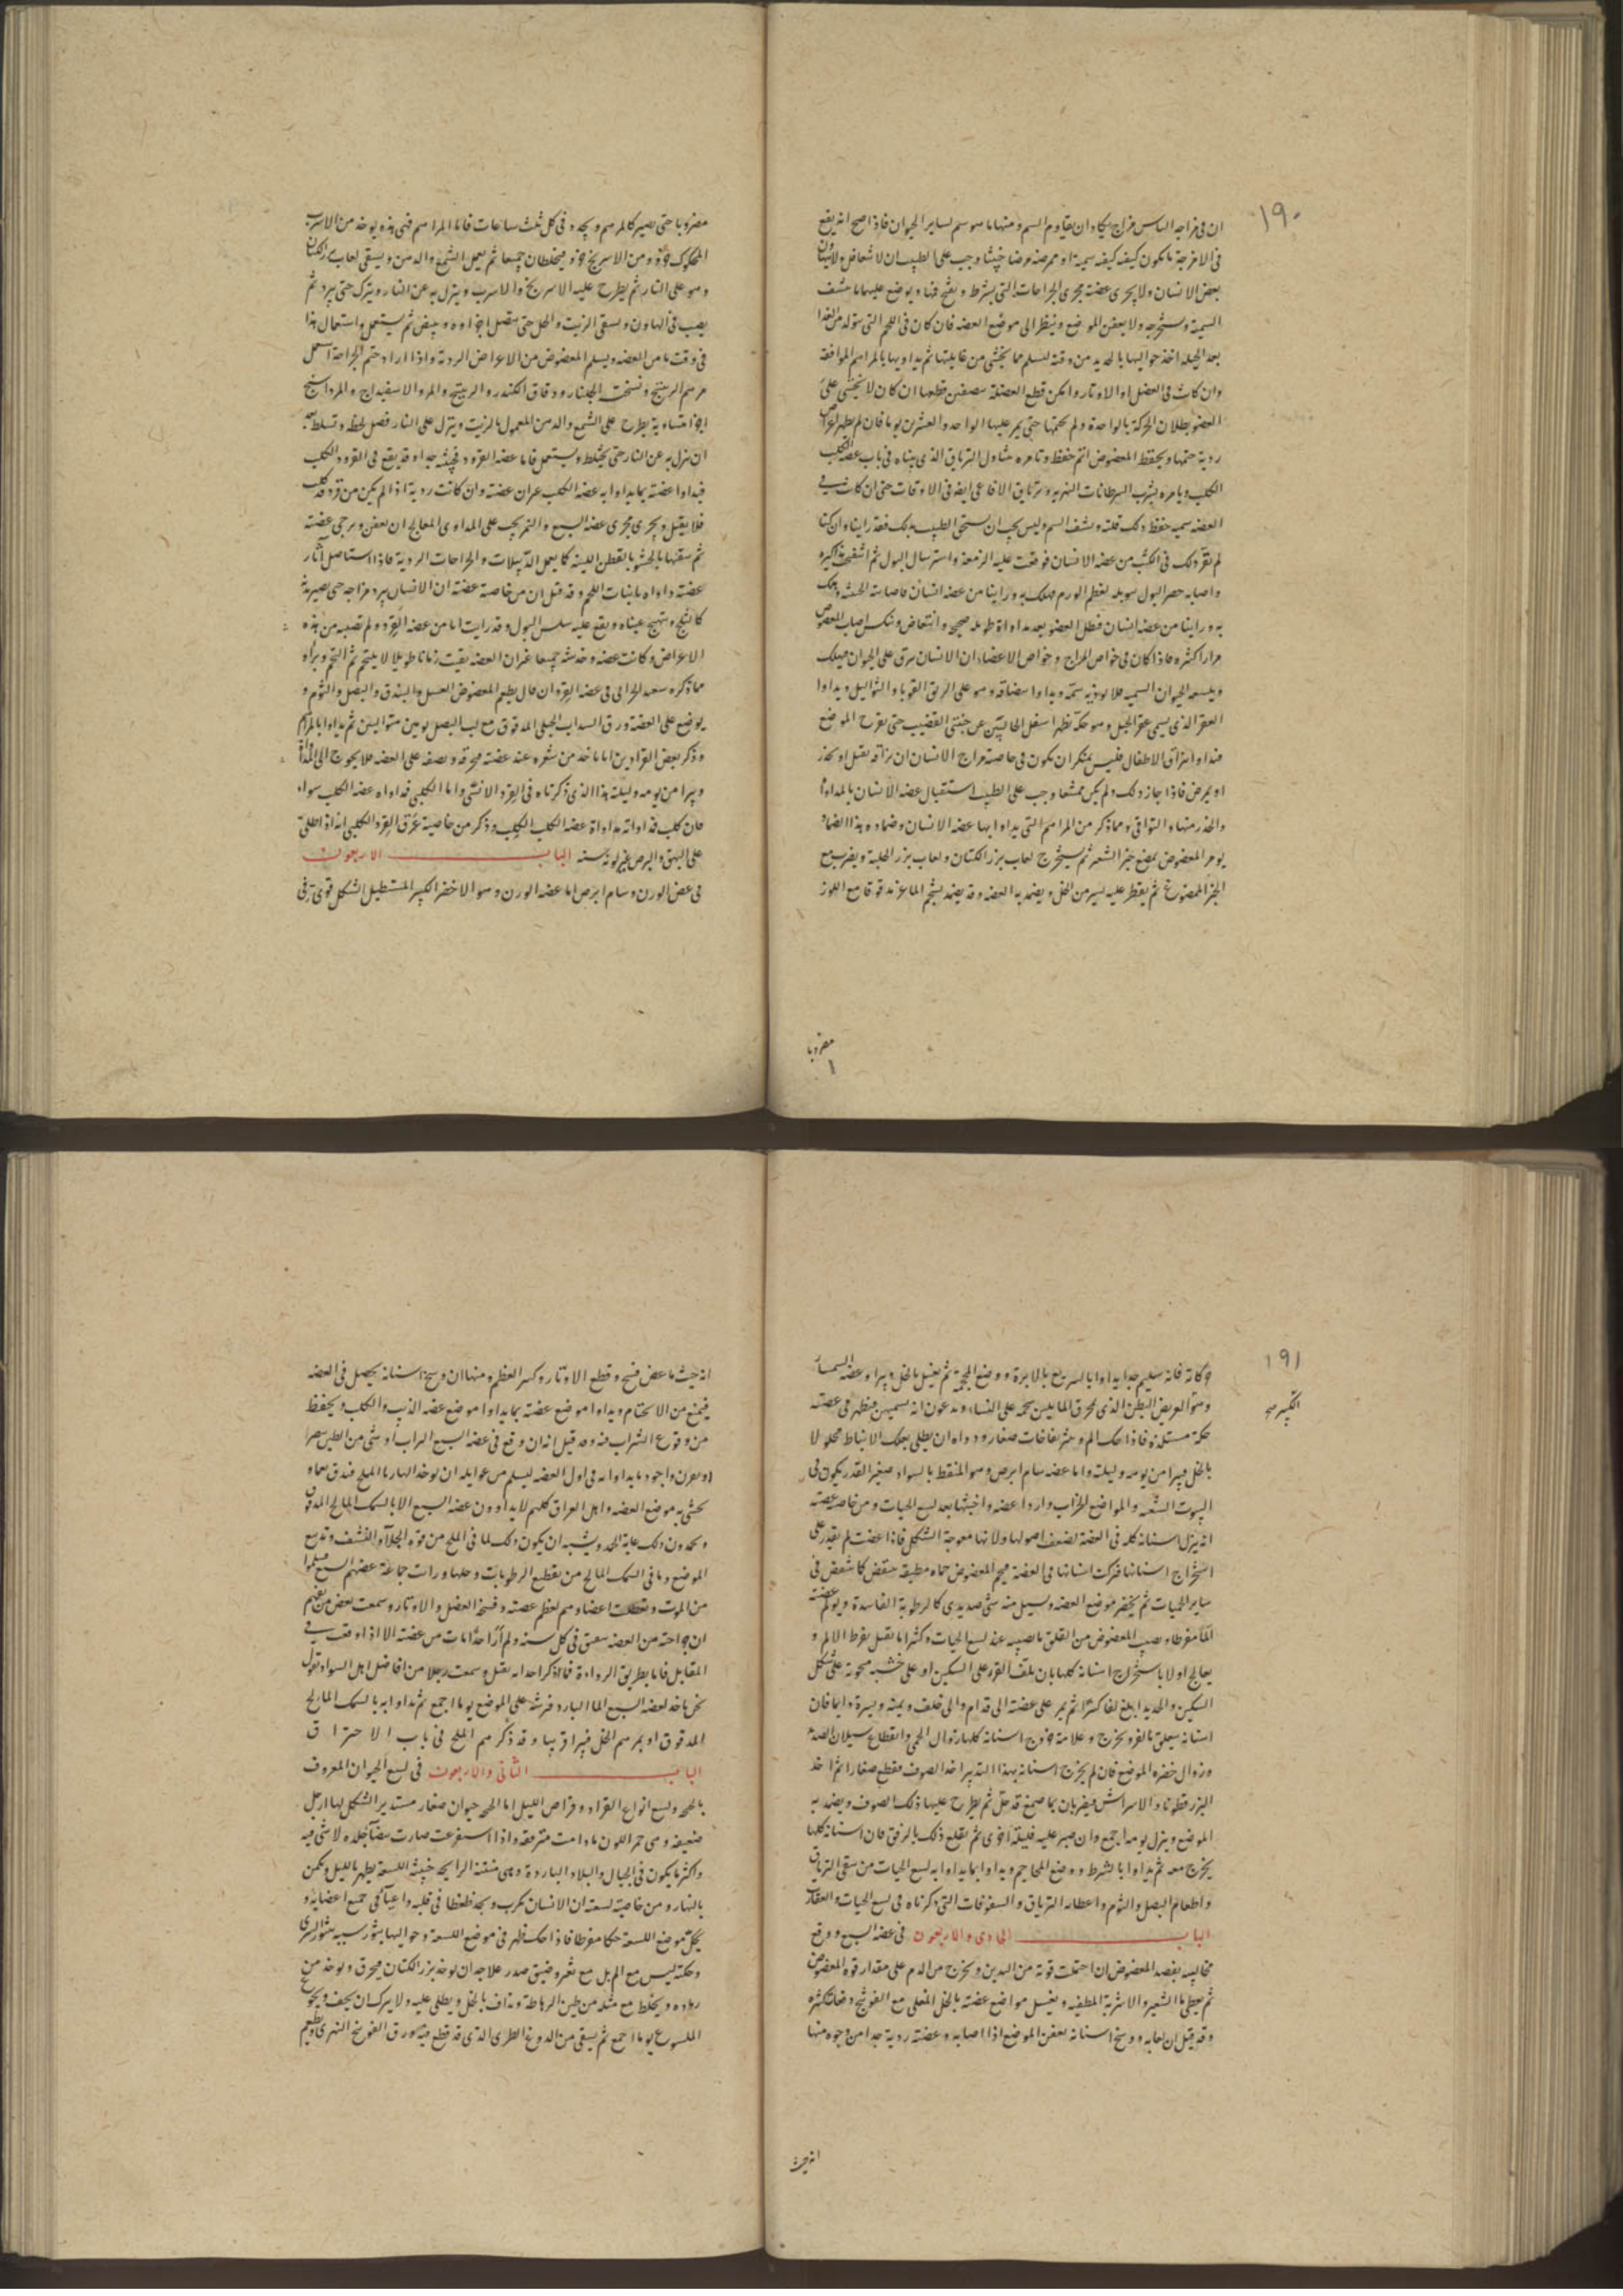 ١٩٠
ان في مزاجه الناس مزاج يكاد ان يقاوم السم ومنها ما هو سم لساير الحيوان فاذا صح انه يقع
في الامزجة ما يكون كيفه كيفه سمية او ممرضة مرضا خبيثا وجب على الطبيب ان لا يتغافل
بعض الانسان ولا يجرى عضته مجرى الجراحات التي يشرط و يفتح فنا و يوضع عليها ما ينشف
السمية ويستخرجه ولا يعفن الموضع وينظر الى موضع العضه فان كان في اللحم التي
بعد الحيلة اخذ حواليها بالحديد من وقته ليسلم مما يخشى من غايلتها ثم يداويها بالمراهم الموافقة
وان كانت في العضل او الاوتار وامكن قطع العضلة بنصفين قطعها ان كان لا يخشى على
العضو بطلان الحركة بالواحدة ولم يختمها حتى يمر عليها الواحد والعشرين يوما فان لم يظهر
ردية ختمها ويحفظ المعضوض اتم حفظ و تامره بتناول الترياق الذي بيناه في باب عضة الكلب
الكلب ويامره بشرب السرطانات النهرية وترياق الافاعي ايضا في الاوقات حتى ان كانت في
العضه سمية حفظ ذلك قلته ونشف السم وليس يجب ان يستحي الطبيب بذلك فقد راينا وان كنا
لم نقر ذلك في الكتب من عضه الانسان فوقعت عليه الزمعة واسترسال البول ثم
واصابه حصر البول سويعه لعظم الورم فهلك به وراينا من عضه انسان فاصابته
به وراينا من عضه انسان فبطل العضو بعد مداواة طويله صحيحه
مرارا كثيره فاذا كان في خواص المزاج وخواص الاعضاء ان الانسان يبزق على الحيوان فيهلك
ويلسعه الحيوان السمية فلا يوذيه سمه ويداوا ببصاقه وهو على الريق القوبا والثواليل ويداوا
العقر الذي يسمى عقر الجبل وهو حكة تظهر اسفل الحالبين عن جنبتي القضيب حتى يقرح الموضع
فيداوا ببزاق الاطفال فليس بمنكر ان يكون في خاصة مزاج الانسان ان بزاقه يقتل او يخدر
او يمرض فاذا جاز ذلك ولم يكن ممتنعا وجب على الطبيب استقبال عضه الانسان بالمداواة
والحذر منها والتوقي ومما ذكر من المراهم التي يداوا بها عضه الانسان وضماده بهذا الضماد
يومر المعضوض بمضغ خبز الشعير ثم يستخرج لعاب بزر الكتان ولعاب بزر الحلبة ويضرب مع
الخبز الممضوغ ثم يقطر عليه يسير من الخل ويضمد به العضه وقد يضمد بشحم الماعز مدقوقا مع اللوز
مضروبا
مضروبا حتى يصير كالمرهم ويجدد في كل ثلث ساعات فاما المراهم فهي هذه يوخذ من الاسرب
المحكوك جزو ومن الاسرنج جزو فيخلطان جميعا ثم يعمل الشمع والدهن ويسقى لعاب بزر الكتان
وهو على النار ثم يطرح عليه الاسرنج والاسرب وينزل به عن النار ويترك حتى يبرد ثم
يصب في الهاون ويسقى الزيت والخل حتى يتصل اجزاوه ويبيض ثم يستعمل واستعمال هذا
في وقت ما من العضه ويسلم المعضوض من الاعراض الردية واذا اراد ختم الجراحة استعمل
مرهم الريتنج ونسخته الجلنار ودقاق الكندر والريتينج والمر والاسفيداج والمرداسنج
اجزا متساوية يطرح على الشمع والدهن المعمول بالزيت وينزل على النار
ان ينزل به عن النار حتى يختلط ويستعمل فاما عضه القرود فخبيثه جدا وقد يقع في القرود الكلب
فيداوا عضته بما يداوا به عضه الكلب غير ان عضته وان كانت ردية اذا لم يكن من قرد قد كلب
فلا يقتل ويجرى مجرى عضه السبع والنمر يجب على المداوى المعالج ان يعفن ويرخي عضته
ثم سقيها بالحشو بالقطن اللينه كما يعمل الدبيلات والجراحات الردية فاذا استاصل آثار
عضته داواه بانبات اللحم وقد قيل ان من خاصية عضته ان الانسان يبرد مزاجه حتى يصير بدنه
كالثلج وتتهيج عيناه ويقع عليه سلس البول وقد رايت انا من عضه القرد ولم تصبه من هذه
الاعراض وكانت عضه وخدشه جميعا غير ان العضه بقيت زمانا طويلا لا يلتحم ثم التحم وبراه
مما ذكره سعد الحرانى في عضه القرد ان قال يطعم المعضوض العسل والبندق والبصل والثوم و
يوضع على العضه ورق السداب الجبلى المدقوق مع لب البصل يومين متواليين ثم يداوا بالمراهم
وذكر بعض القرادين انا ناخذ من شعره عند عضته فيحرقه ونضعه على العضه فلا يحوج الى المداواة
ويبرا من يومه وليلته هذا الذي ذكرناه في القرد الانثى واما الكلبى فمداواه عضه الكلب سواء
فان كلب فمداواته مداواة عضه الكلب الكلب وذكر من خاصية عرق القرد الكلبى انه اذا طلى
على البهق والبرص غير لونه سنه الباب الاربعون
في عض الورن وسام ابرص اما عضه الورن وهو الاخضر الكبير المستطيل الشكل قوى في
١٩١
حركاته فانه سليم جدا يداوا بالسريع بالابرة ووضع المحجمة ثم يغسل بالخل ويبرا وعضه السمار
الكبير صح
وهو العريض البطن الذي يحرق الما بيين بحمه على النساء ويدعون انه يسمنهن فيظهر في عضته
حكة مستلذه فاذا حك الم و بثر نفاخات صغار ودواه ان يطلى بعلك الانباط محلولا
بالخل فيبرا من يومه وليلته واما عضه سام ابرص وهو المنقط بالسواد صغير القدر يكون في
البيوت الشعثه والمواضع الخراب واردا عضه واخبثها بعد لسع الحيات ومن خاصه عضته
انه ينزل اسنانه كله في العضه لضعف اصولها ولانها معوجة الشكل فاذا عضت لم يقدر على
استخراج اسنانها فتركت اسنانها في العضة فيحم المعضوض حماه مطبقه
ساير الحميات ثم يخضر موضع العضه ويسيل منه شى صديدى كالرطوبة الفاسدة ويولم عضته
الما مفرطا ويصيب المعضوض من القلق ما يصيبه عند لسع الحيات وكثيرا ما يقتل بفرط الالم و
يعالج اولا باستخراج اسنانه كلها بان يلف القز على السكين او على خشبه منحوتة على شكل
السكين والحديد ابلغ لفا كثيرا ثم يمر على عضته الى قدام والى خلف ويمنه ويسرة دايما فان
اسنانه يتعلق بالقز ويخرج وعلامة خروج اسنانه كلها زوال الحمى وانقطاع سيلان الصديد
وزوال خضره الموضع فان لم يخرج اسنانه بهذا التدبير اخذ الصوف فقطع صغارا ثم اخذ
البزر قطونا والاسراش فيضربان بما صمغ قد حل ثم يطرح عليها ذلك الصوف ويضمد به
الموضع ويترك يومه اجمع وان صبر عليه فليلة اخرى ثم يقلع ذلك بالرفق فان اسنانه كلها
يخرج معه ثم يداوا بالشرط ووضع المحاجم ويداوا بما يداوا به لسع الحيات من سقى الترياق
واطعام البصل والثوم واعطاه الترياق والسفوفات التي ذكرناه في لسع الحيات والعقارب
الباب الحادى والاربعون في عضه السبع ووقع
مخالبه يفصد المعضوض ان احتملت قوته من اليدين ويخرج من الدم على مقدار قوه المعضوض
ثم يعطى ما الشعير والاشربة المطفيه ويغسل مواضع عضته بالخل المغلى مع الفوتنج دفعات كثيره
وقد قيل ان لعابه ووسخ اسنانه يعفن الموضع اذا اصابه وعضته ردية جدا من وجوه منها
انه حيث
انه حيث ما عض فسخ وقطع الاوتار وكسر العظم ومنها ان وسخ اسنانه يحصل في العضه
فيمنع من الالتحام ويداوا موضع عضته بما يداوا موضع عضه الذيب والكلب ويحفظ
من وقوع التراب فيه وقد قيل انه ان وقع في عضه السبع التراب او شى من الطين
واجود ما يداوا به في اول العضه ليسلم من غوايله ان يوخذ لها بالملح فيدق نعما و
يحشى به موضع العضه واهل العراق كلهم لا يداوون عضه السبع الا بالسمك المالح المدقوق
ويحمدون ذلك غاية الحمد ويشبه ان يكون ذلك لما في الملح من قوة الجلاء والنشف وتدبيغ
الموضع وما في السمك المالح من تقطيع الرطوبات وحلها ورايت جماعة عضهم السبع فسلموا
من الموت وتعطلت اعضاوهم لعظم عضته وفسخ العضل والاوتار وسمعت بعض من يفهم
ان جراحته من العضه ينتقض في كل سنه ولم أر احدا مات من عضته الا اذا وقعت في
المقاتل فاما بطريق الرداءة فما اذكر احد انه يقتل وسمعت رجلا من افاضل اهل السواد يقول
نحن ناخذ لعضه السبع الما البارد فنرشه على الموضع يوما اجمع ثم نداوا به بالسمك المالح
المدقوق او بمرهم الخل فيبرا قريبا وقد ذكر مرهم الملح في باب الاحتراق
الباب الثانى والاربعون في لسع الحيوان المعروف
ولسع انواع القراد وقراص الليل اما حيوان صغار مستدير الشكل لها ارجل
ضعيفه وهى حمر اللون ما دامت متفرقه واذا صارت بيضا جلده لا شى فيه
واكثر ما يكون في الجبال والبلاد الباردة وهى منتنة الرايحه خبيثه اللسعة يظهر بالليل ويكمن
بالنهار ومن خاصية لسعته ان الانسان يكرب ويجد ضغطا في قلبه واعياء في جميع اعضايه و
يحك موضع اللسعة حكا مفرطا فاذا حك ظهر في موضع اللسعة وحواليها بثور شبيه ببثور الشرى
وحكته ليس مع الم بل مع ضيق صدر علاجه ان يوخذ بزر الكتان فيحرق ويوخذ من
رماده ويخلط مع مثله من طين ويداف بالخل ويطلى عليه ولا يترك ان يجف ويجوع
الملسوع يوما اجمع ثم يسقى من الدوغ الطرى الذي قد قطع فيه ورق الفوتنج النهرى ويطعم